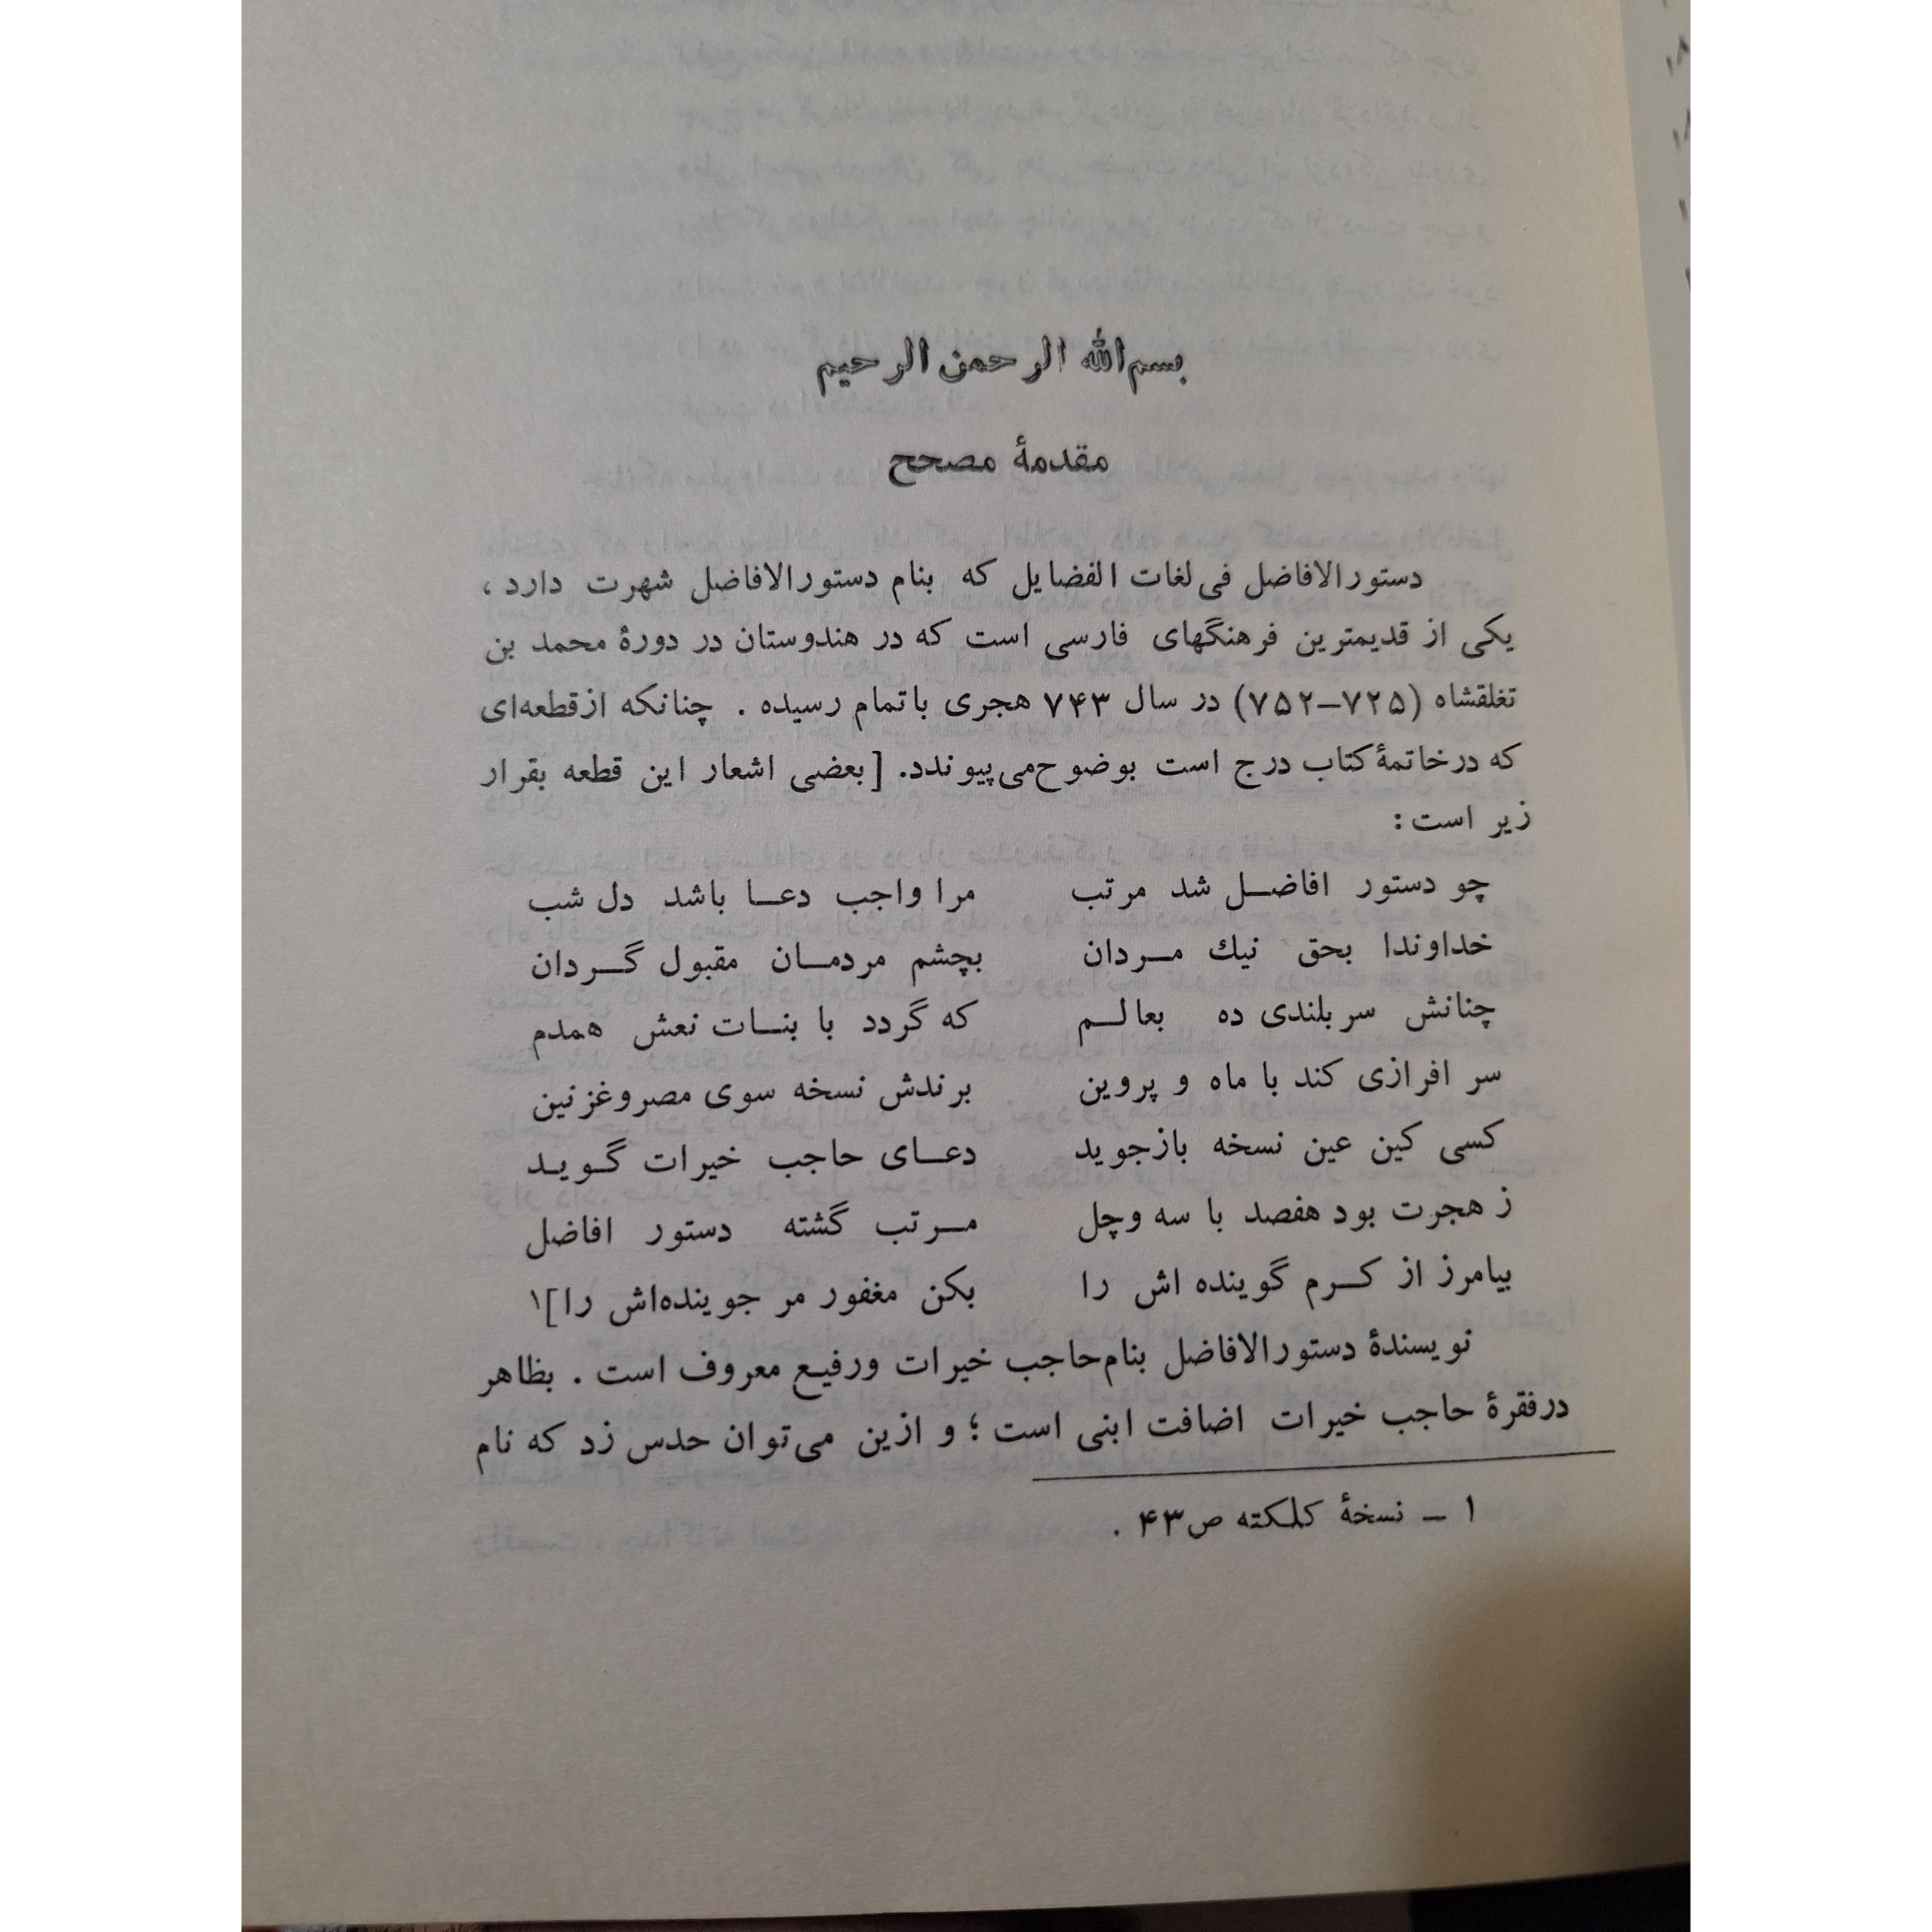 بسم‌الله الرحمن الرحیم
مقدمهٔ مصحح
دستورالافاضل فی لغات الفضایل که بنام دستورالافاضل شهرت دارد ،
یکی از قدیمترین فرهنگهای فارسی است که در هندوستان در دورهٔ محمد بن
تغلقشاه (۷۲۵–۷۵۲) در سال ۷۴۳ هجری باتمام رسیده . چنانکه ازقطعه‌ای
که درخاتمهٔ کتاب درج است بوضوح می‌پیوندد. [بعضی اشعار این قطعه بقرار
زیر است :
چو دستور افاضل شد مرتب مرا واجب دعا باشد دل شب
خداوندا بحق نیك مردان بچشم مردمان مقبول گردان
چنانش سربلندی ده بعالم که گردد با بنات نعش همدم
سر افرازی کند با ماه و پروین برندش نسخه سوی مصروغزنین
کسی کین عین نسخه بازجوید دعای حاجب خیرات گوید
ز هجرت بود هفصد با سه وچل مرتب گشته دستور افاضل
بیامرز از کرم گوینده اش را بکن مغفور مر جوینده‌اش را]۱
نویسندهٔ دستورالافاضل بنام‌حاجب خیرات ورفیع معروف است . بظاهر
درفقرهٔ حاجب خیرات اضافت ابنی است ؛ و ازین می‌توان حدس زد که نام
۱ – نسخهٔ کلکته ص۴۳ .